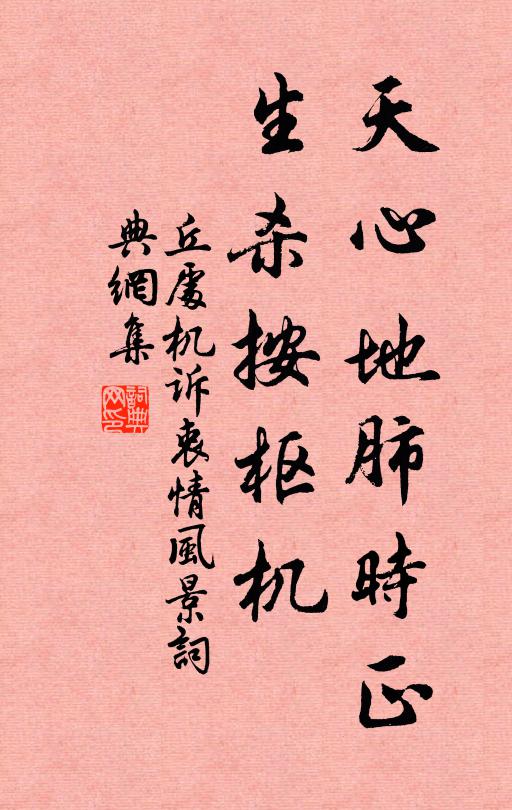 天心地肺時正
生杀按枢机
丘處机诉衷情風景詞
典網集
詞典网印